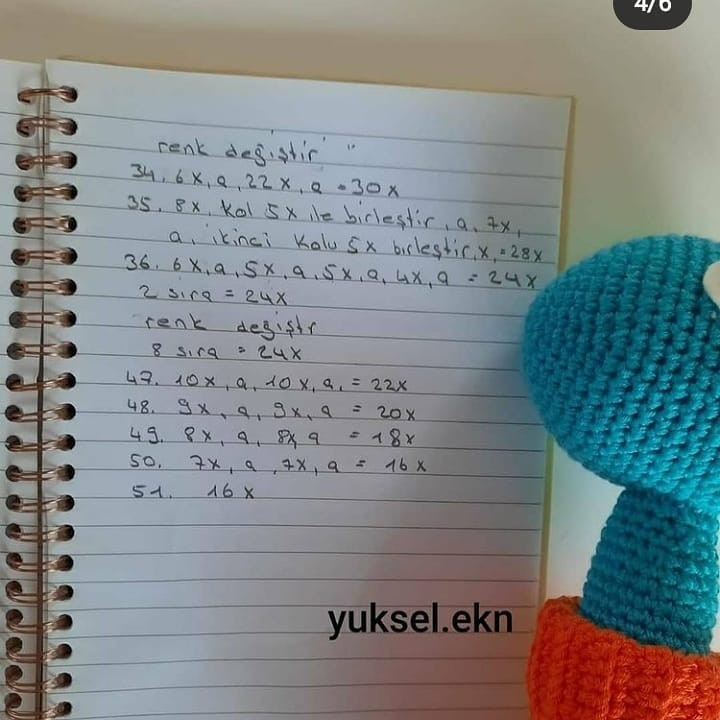 4/6
renk değiştir
34. 6x, a, 22x, a = 30x
35. 8x, kol 5x ile birleştir, a, 7x,
a, ikinci kolu 5x birleştir, x, = 28x
36. 6x, a, 5x, a, 5x, a, 4x, a = 24x
2 sıra = 24x
renk değiştr
8 sıra = 24x
47. 10x, a, 10x, a, = 22x
48. 9x, a, 9x, a = 20x
49. 8x, a, 8x, a = 18x
50. 7x, a, 7x, a = 16x
51. 16x
yuksel.ekn